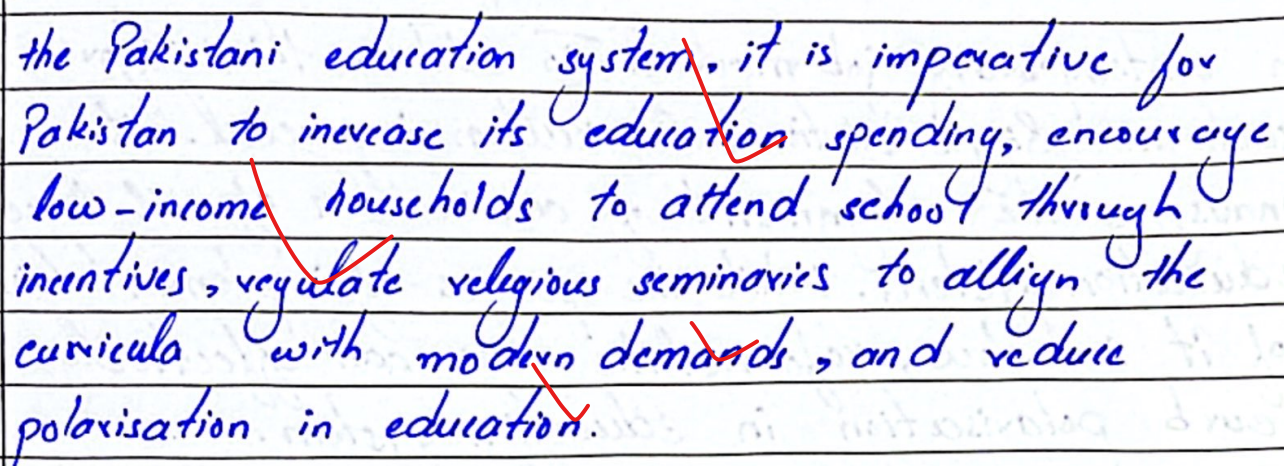 the Pakistani education system, it is imperative for
Pakistan to increase its education spending, encourage
low-income households to attend school through
incentives, regulate religious seminaries to allign the
curricula with modern demands, and reduce
polarisation in education.